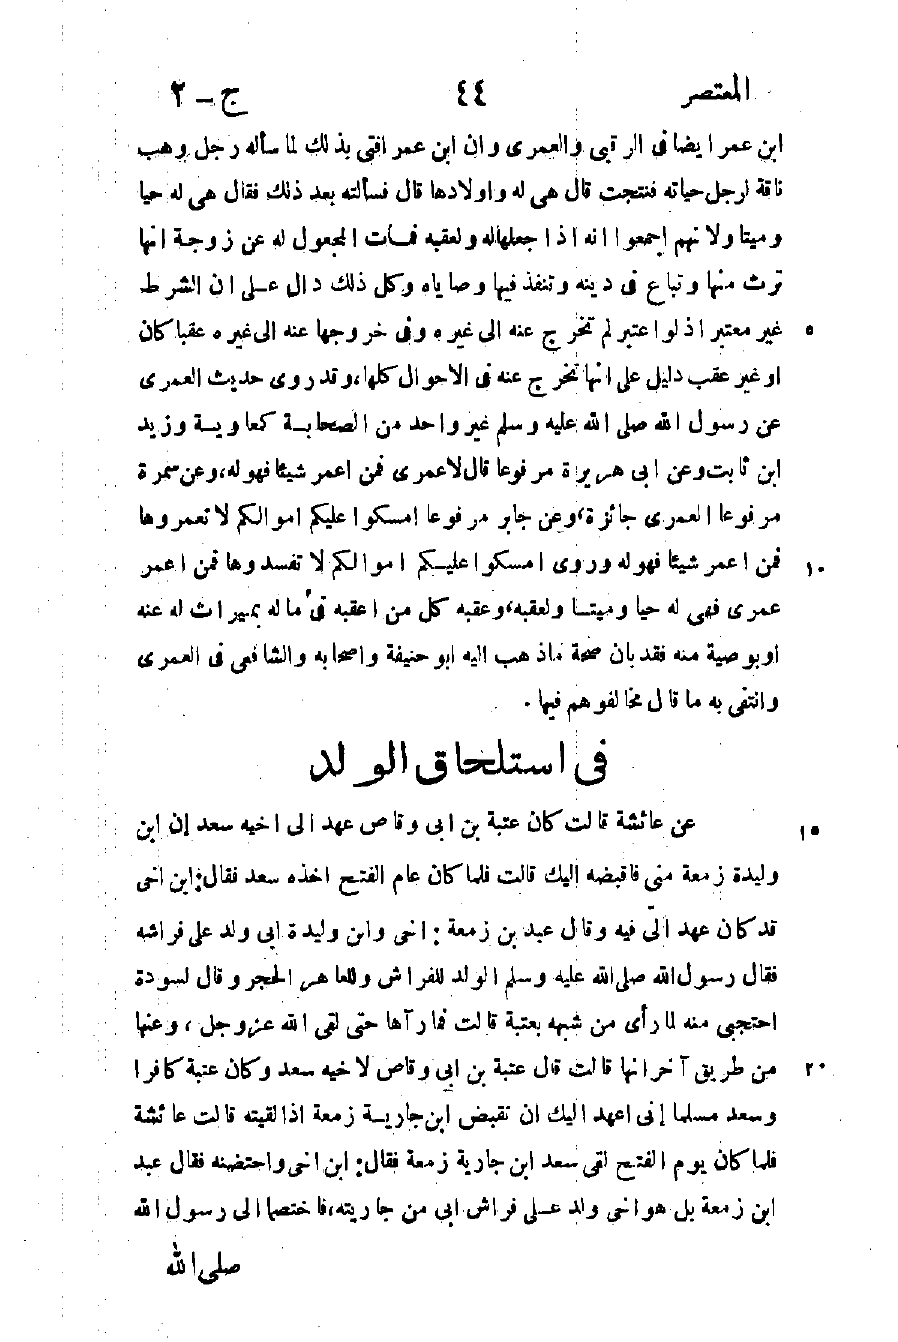 المعتصر ٤٤ ج - ٢
ابن عمر ايضا فى الرقبى والعمرى وان ابن عمر افتى بذلك لما سأله رجل وهب
ناقة لرجل حياته فنتجت قال هى له واولادها قال فسألته بعد ذلك فقال هى له حيا
وميتا ولانهم اجمعوا انه اذا جعلها له ولعقبه فمات المجعول له عن زوجة انها
ترث منها وتباع فى دينه وتنفذ فيها وصاياه وكل ذلك دال على ان الشرط
غير معتبر اذ لو اعتبر لم تخرج عنه الى غيره وفى خروجها عنه الى غيره عقبا كان ٥
او غير عقب دليل على انها تخرج عنه فى الاحوال كلها، وقد روى حديث العمرى
عن رسول الله صلى الله عليه وسلم غير واحد من الصحابة كمعاوية وزيد
ابن ثابت وعن ابى هريرة مرفوعا قال لا عمرى فمن اعمر شيئا فهو له، وعن سمرة
مرفوعا العمرى جائزة، وعن جابر مرفوعا امسكوا عليكم اموالكم لا تعمروها
فمن اعمر شيئا فهو له وروى امسكوا عليكم اموالكم لا تفسدوها فمن اعمر ١٠
عمرى فهى له حيا وميتا ولعقبه، وعقبه كل من اعقبه فى ماله بميراث له عنه
او بوصية منه فقد بان صحة ماذهب اليه ابو حنيفة واصحابه والشافعى فى العمرى
وانتفى به ما قال مخالفوهم فيها .
فى استلحاق الولد
عن عائشة قالت كان عتبة بن ابى وقاص عهد الى اخيه سعد إن ابن ١٥
وليدة زمعة منى فاقبضه اليك قالت فلما كان عام الفتح اخذه سعد فقال: ابن اخى
قد كان عهد الىّ فيه وقال عبد بن زمعة: اخى وابن وليدة ابى ولد على فراشه
فقال رسول الله صلى الله عليه وسلم الولد للفراش وللعاهر الحجر وقال لسودة
احتجبى منه لما رأى من شبهه بعتبة قالت فما رآها حتى لقى الله عز وجل، وعنها
من طريق آخر انها قالت قال عتبة بن ابى وقاص لاخيه سعد وكان عتبة كافرا ٢٠
وسعد مسلما إنى اعهد اليك ان تقبض ابن جارية زمعة اذا لقيته قالت عائشة
فلما كان يوم الفتح لقى سعد ابن جارية زمعة فقال: ابن اخى واحتضنه فقال عبد
ابن زمعة بل هو اخى ولد على فراش ابى من جاريته، فاختصما الى رسول الله
صلى الله